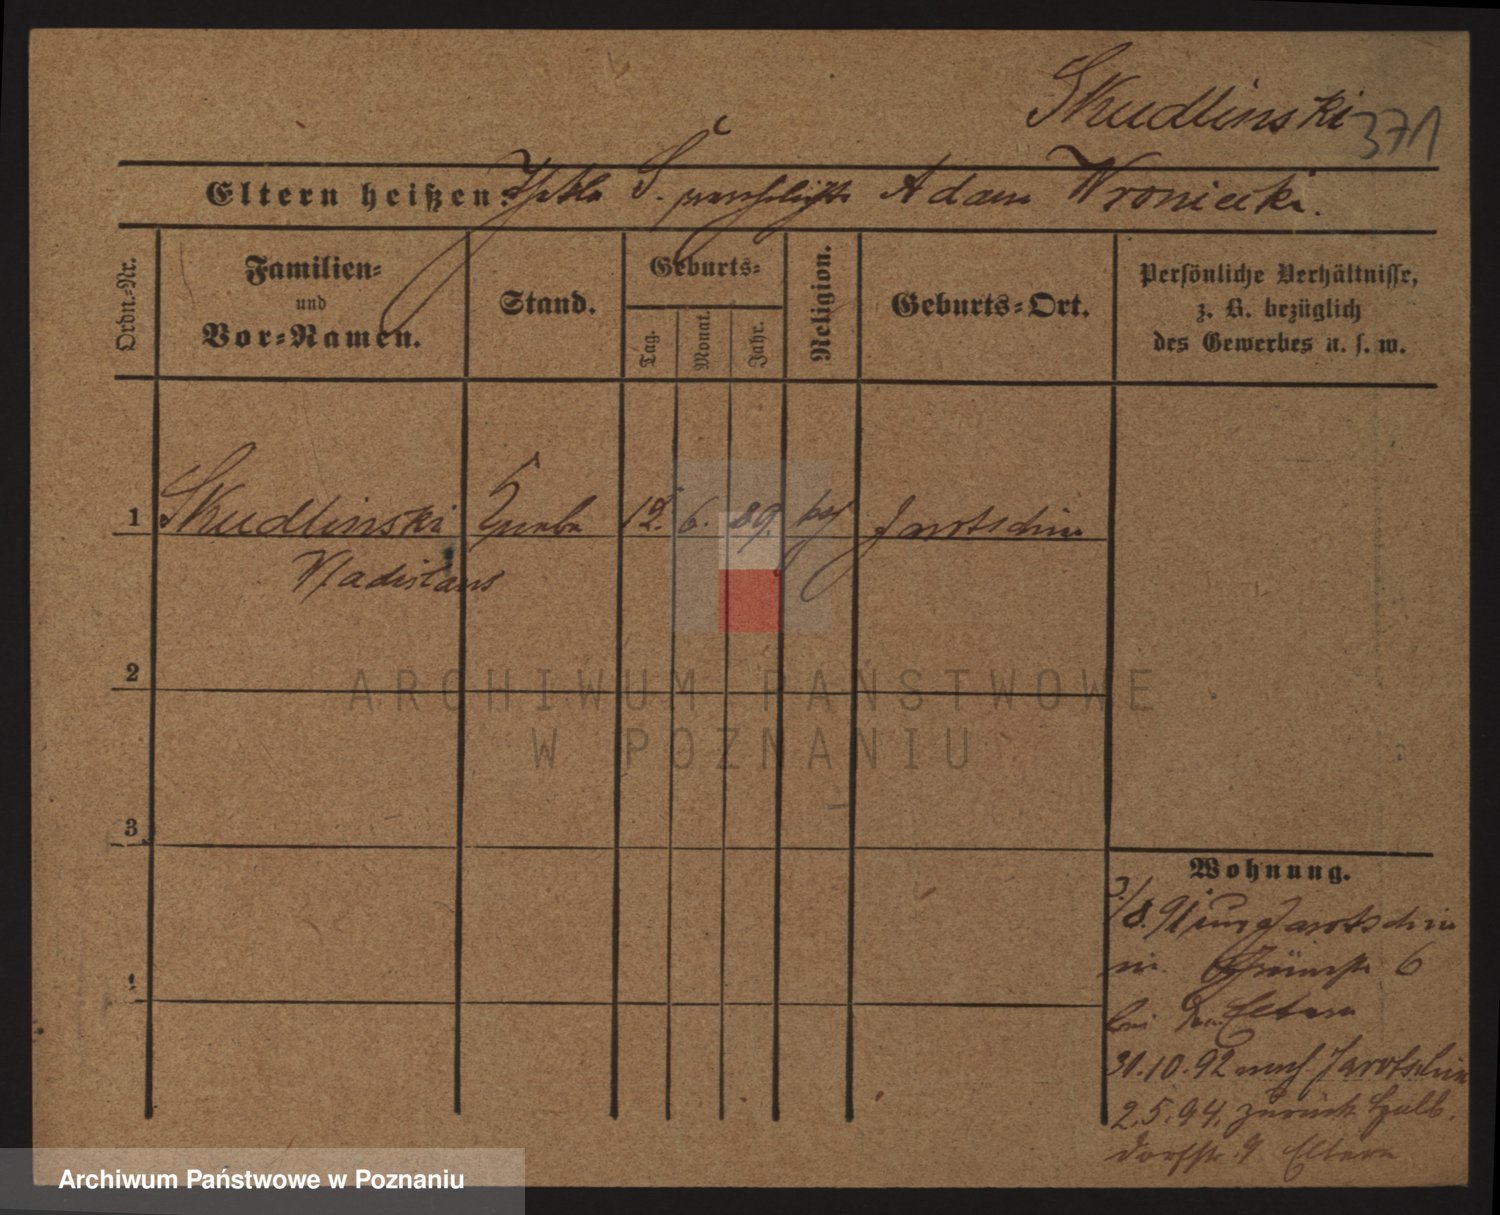 Skudlinski 371
Eltern heißen: Thekla S. verehelichte Adam Wroniecki.
Ordn.-Nr.
Familien-
und
Vor-Namen.
Stand.
Geburts-
Tag.
Monat.
Jahr.
Religion.
Geburts-Ort.
Persönliche Verhältnisse,
z. B. bezüglich
des Gewerbes u. s. w.
1 Skudlinski Knabe 12. 6. 89. kath Jarotschin
Wladislaus
2
ARCHIWUM PAŃSTWOWE
W POZNANIU
3
4
Wohnung.
3/8. 91 aus Jarotschin
6
bei den Eltern
31.10.92 nach Jarotschin
2.5.94. zurück Halb
dorfstr. 9 Eltern
Archiwum Państwowe w Poznaniu